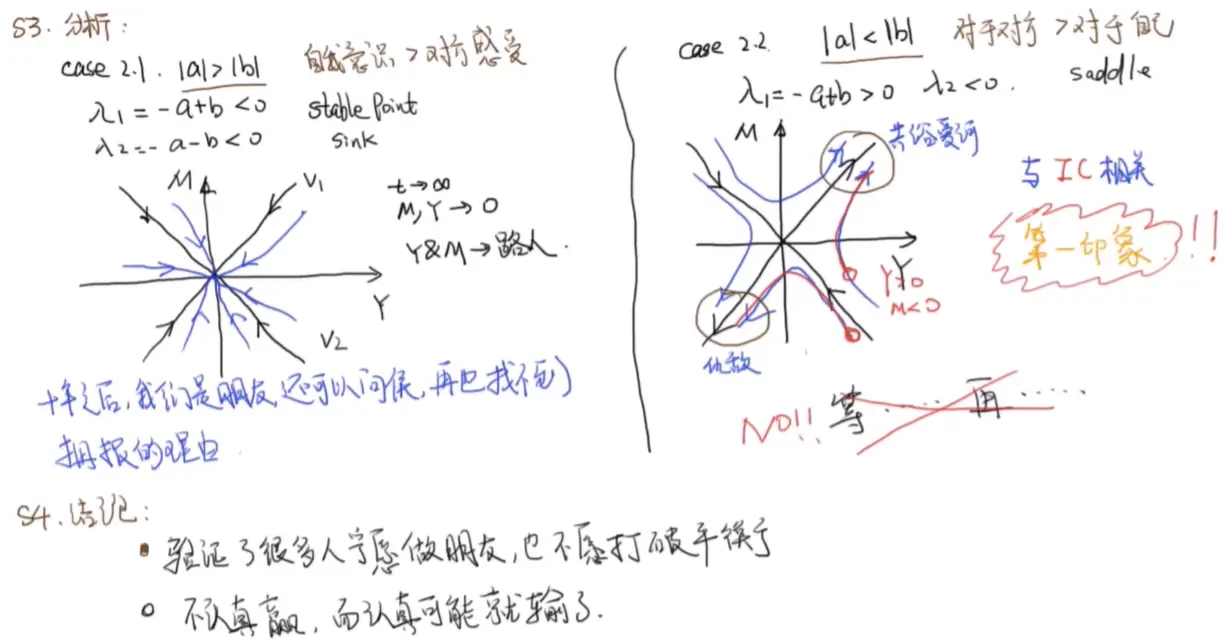 S3. 分析:
case 2.1. |a|>|b| 自我意识 > 对方感受
λ1 = -a+b < 0 stable point
λ2 = -a-b < 0 sink
M
V1
t→∞
M,Y→0
Y&M→路人.
Y
V2
十年之后,我们是朋友,还可以问候,再也找不到
拥抱的理由
case 2.2. |a|<|b| 对于对方 > 对于自己
λ1 = -a+b > 0 λ2 < 0. saddle
M
共浴爱河
与 IC 相关
第一印象!!
Y
Y>0
M<0
仇敌
NO!! 等······再······
S4. 结论:
验证了很多人宁愿做朋友,也不愿打破平衡
不认真赢,而认真可能就输了.